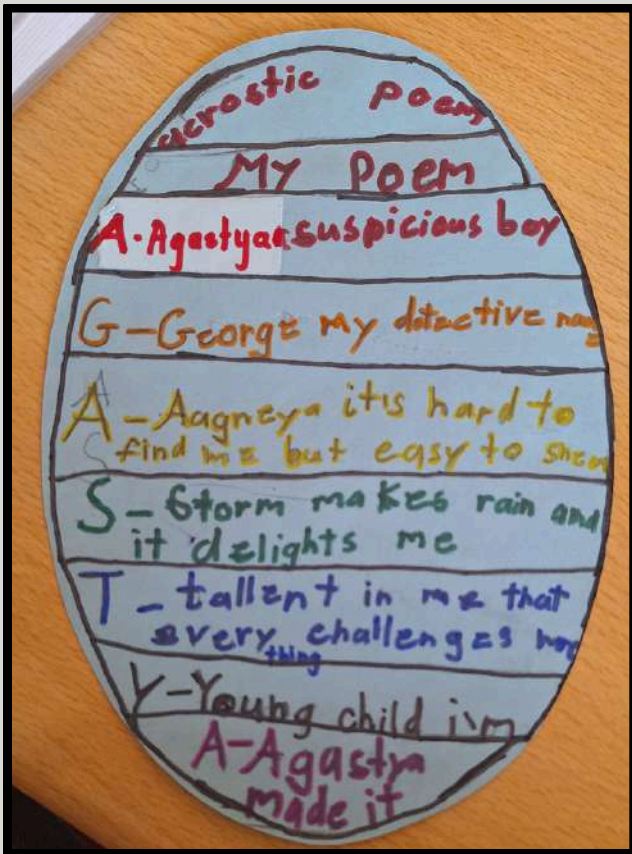 acrostic poem
My Poem
A. Agastya a suspicious boy
G-George my detective
A-Aagneya it's hard to
find me but easy to
S-Storm makes rain and
it delights me
T-tallent in me that
every thing challenges
Y-Young child i'm
A-Agastya
made it